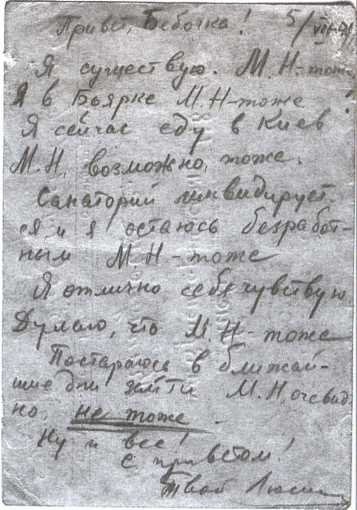 Привет, Бебочка! 5/VII-41
Я существую. М.Н-тоже.
Я в Боярке М.Н-тоже!
Я сейчас еду в Киев
М.Н. возможно, тоже.
Санаторий ликвидирует-
ся и я остаюсь безработ-
ным М.Н-тоже
Я отлично себя чувствую
Думаю, что М.Н-тоже
Постараюсь в ближай-
шие дни зайти М.Н, очевид-
но, не тоже.
Ну и все!
С приветом!
Твой